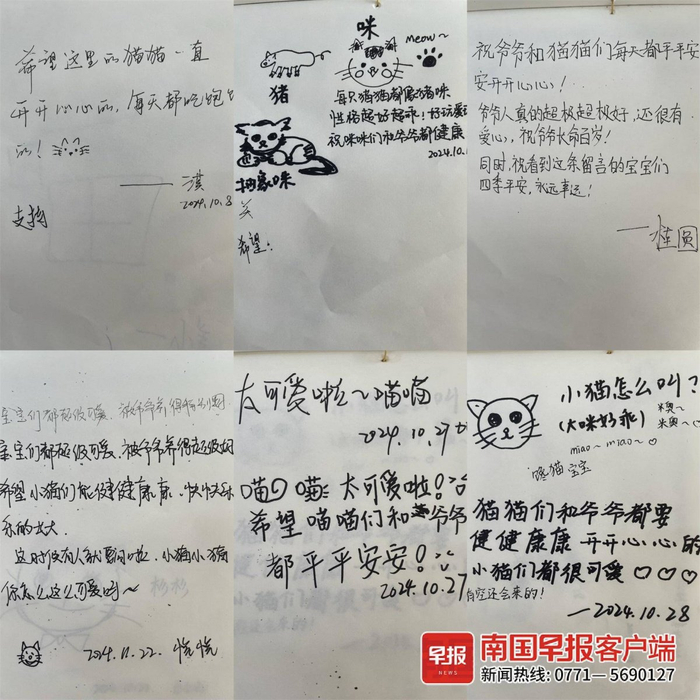 希望这里的猫猫一直
开开心心的，每天都吃饱
的！
——淇
2024.10.8
支持
咪
meow~
猪
每只猫猫都像猪咪
性格超好超乖！好玩爱
祝咪咪们和爷爷都健康
2024.10.1
抽象咪
关
希望：
祝爷爷和猫猫们每天都平平安
安开开心心！
爷爷人真的超极超极好，还很有
爱心，祝爷爷长命百岁！
同时，祝看到这条留言的宝宝们
四季平安，永远幸运！
——桂圆
宝宝们都超级可爱，被爷爷养得
宝宝们都超级可爱，被爷爷养得超级好
希望小猫们能健健康康，快快乐
乐的长大
这时候有人就要问啦，小猫小猫
你怎么这么可爱呀~
2024.11.22. 悦悦
太可爱啦~喵喵
2024.10.27
喵 喵 太可爱啦！
希望喵喵们和爷爷
都平平安安！
2024.10.27
小猫怎么叫？
(大咪好乖)
miao~ miao~
馋猫宝宝
猫猫们和爷爷都要
健健康康 开开心心的
小猫们都很可爱♡♡♡
有空还会来的！
—2024.10.28
早报
NEWS
南国早报客户端
新闻热线：0771—5690127